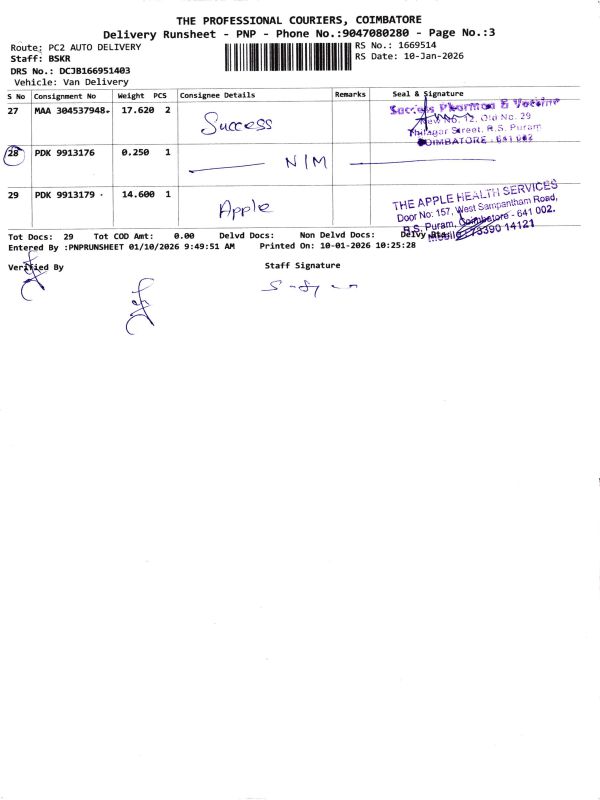 THE PROFESSIONAL COURIERS, COIMBATORE
Delivery Runsheet - PNP - Phone No.:9047080280 - Page No.:3
Route: PC2 AUTO DELIVERY RS No.: 1669514
Staff: BSKR RS Date: 10-Jan-2026
DRS No.: DCJB166951403
Vehicle: Van Delivery
S No Consignment No Weight PCS Consignee Details Remarks Seal & Signature
27 MAA 304537948 17.620 2 Success
Success Pharma & Vaccine
New No. 12, Old No. 29
Thilagar Street, R.S. Puram
COIMBATORE - 641 002
28 PDK 9913176 0.250 1 N/M
29 PDK 9913179 14.600 1 Apple
THE APPLE HEALTH SERVICES
Door No: 157, West Sampantham Road,
R.S. Puram, Coimbatore - 641 002.
Mobile: 73390 14121
Tot Docs: 29 Tot COD Amt: 0.00 Delvd Docs: Non Delvd Docs: Delvy
Entered By :PNPRUNSHEET 01/10/2026 9:49:51 AM Printed On: 10-01-2026 10:25:28
Verified By Staff Signature